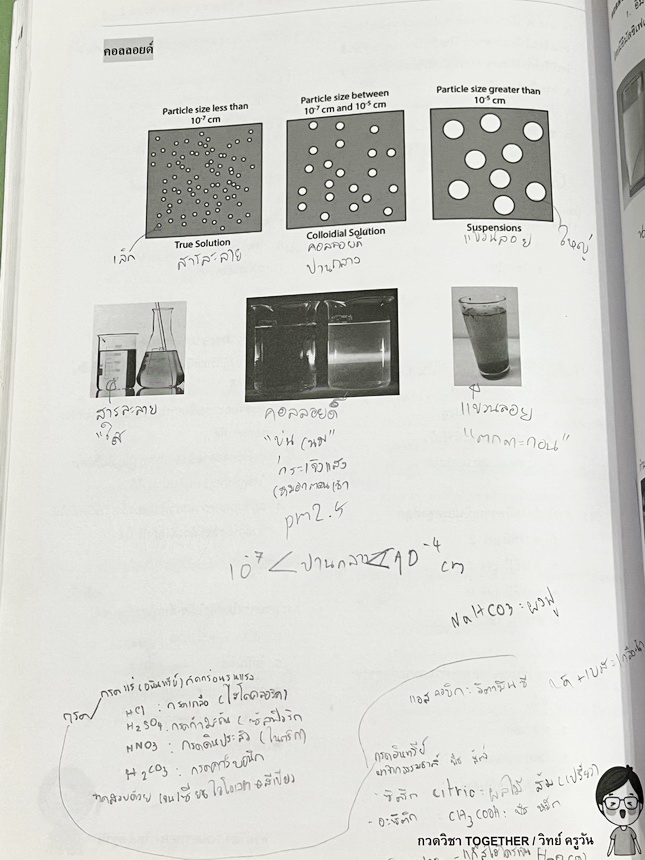 คอลลอยด์
Particle size less than
10⁻⁷ cm
Particle size between
10⁻⁷ cm and 10⁻⁵ cm
Particle size greater than
10⁻⁵ cm
True Solution
Colloidial Solution
Suspensions
เล็ก
สารละลาย
คอลลอยด์
ปานกลาง
แขวนลอย
ใหญ่
สารละลาย
"ใส
คอลลอยด์
"ขุ่น นม"
กระเจิงแสง
pm2.5
แขวนลอย
"ตกตะกอน"
10⁻⁷ < ปานกลาง < 10⁻⁴ cm
NaHCO3 = ผงฟู
กรด
กรดแร่ (อนินทรีย์) กัดกร่อนรุนแรง
HCl : กรดเกลือ (ไฮโดรคลอริก)
H2SO4 : กรดกำมะถัน (ซัลฟิวริก
HNO3 : กรดดินประสิว (ไนตริก)
H2CO3 : กรดคาร์บอนิก
ทดสอบด้วย เจนเชียนไวโอเลต
แอสคอบิก : วิตามินซี
กรดอินทรีย์
มาจากธรรมชาติ พืช สัตว์
ซิตริก citric = ผลไม้ ส้ม (เปรี้ยว)
อะซิติก CH3COOH :
กวดวิชา TOGETHER / วิทย์ ครูวัน